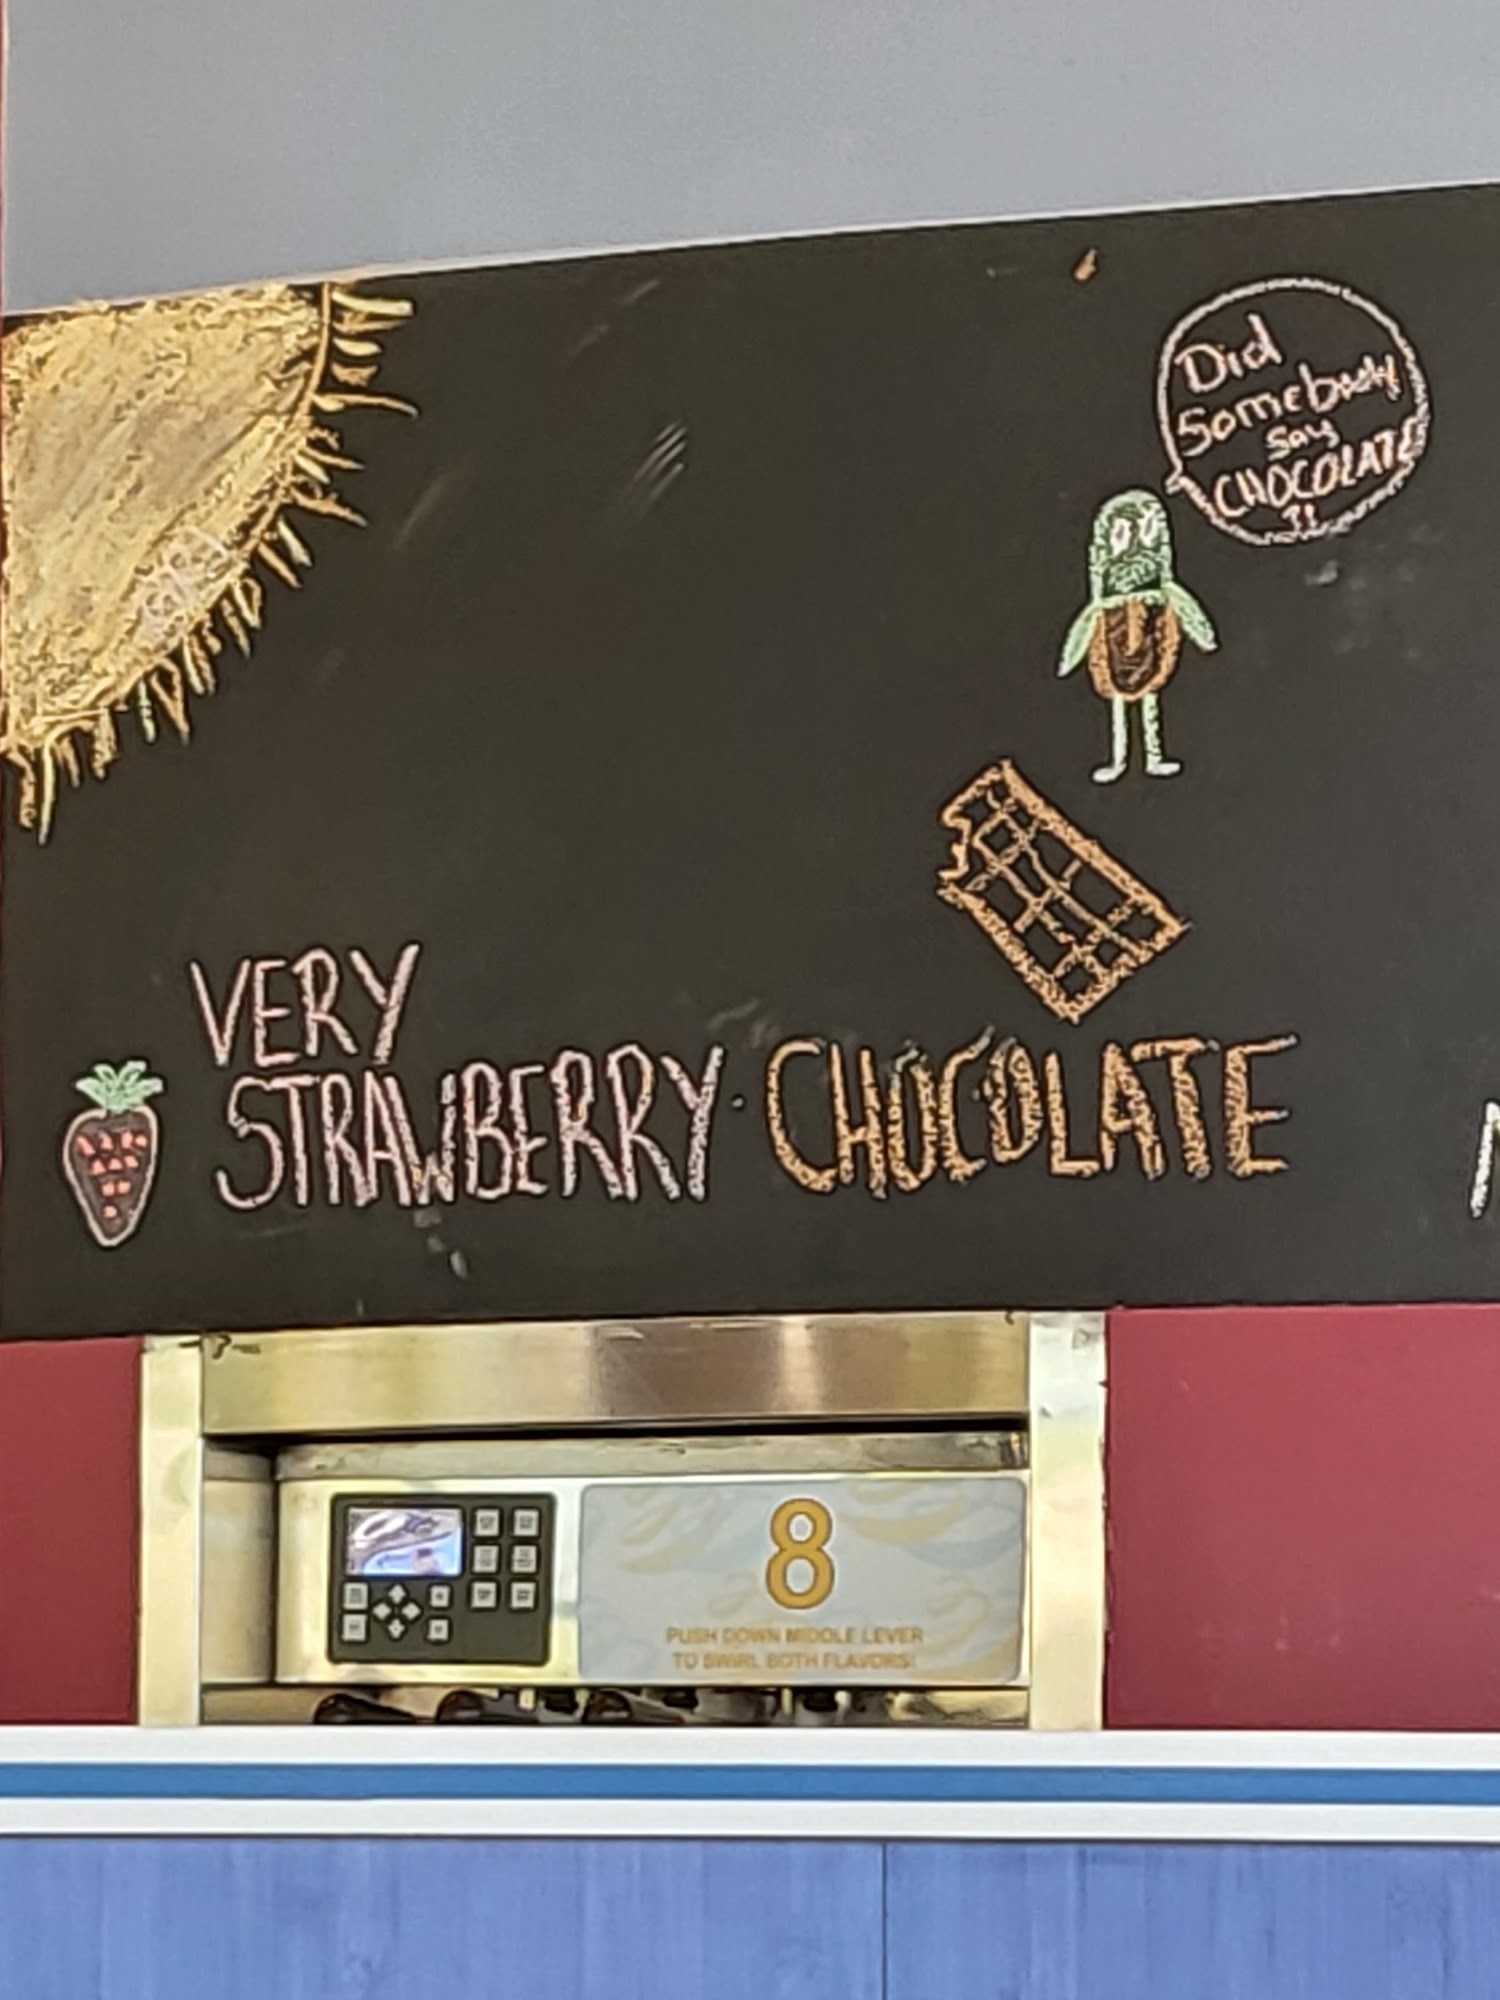 Did
Somebody
Say
CHOCOLATE
?!
VERY
STRAWBERRY
CHOCOLATE
8
PUSH DOWN MIDDLE LEVER
TO SWIRL BOTH FLAVORS!